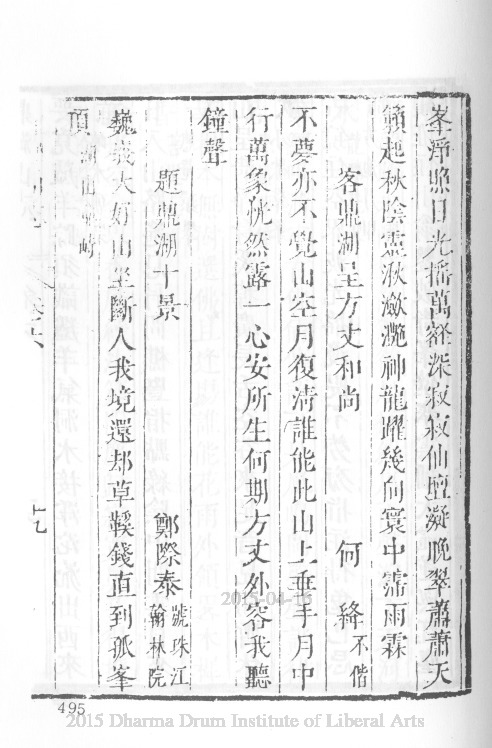 峯浮照日光搖萬壑深寂寂仙壇凝晚翠蕭蕭天
籟起秋陰靈湫瀲灧神龍躍幾向寰中霈雨霖
客鼎湖呈方丈和尚 何絳不偕
不夢亦不覺山空月復清誰能此山上垂手月中
行萬象恍然露一心安所生何期方丈外容我聽
鐘聲
題鼎湖十景 鄭際泰號珠江翰林院
巍峩大好山坐斷人我境還却草鞵錢直到孤峯
頂湖山
十九
495
2015-04-16
2015 Dharma Drum Institute of Liberal Arts